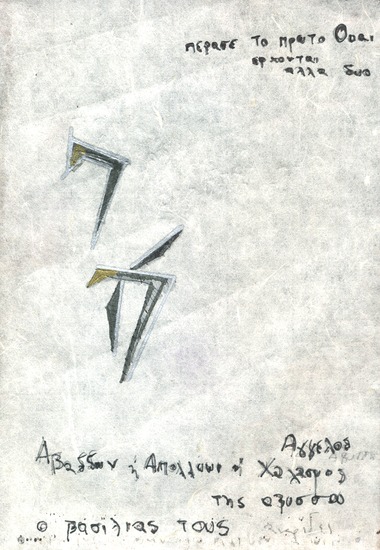 περασε το πρωτο Ουαι
ερχονται
αλλα δυο
Αγγελος
Αβαδδων ή Απολλυων ή Χαλασμος
της αβυσσου
ο βασιλιας τους